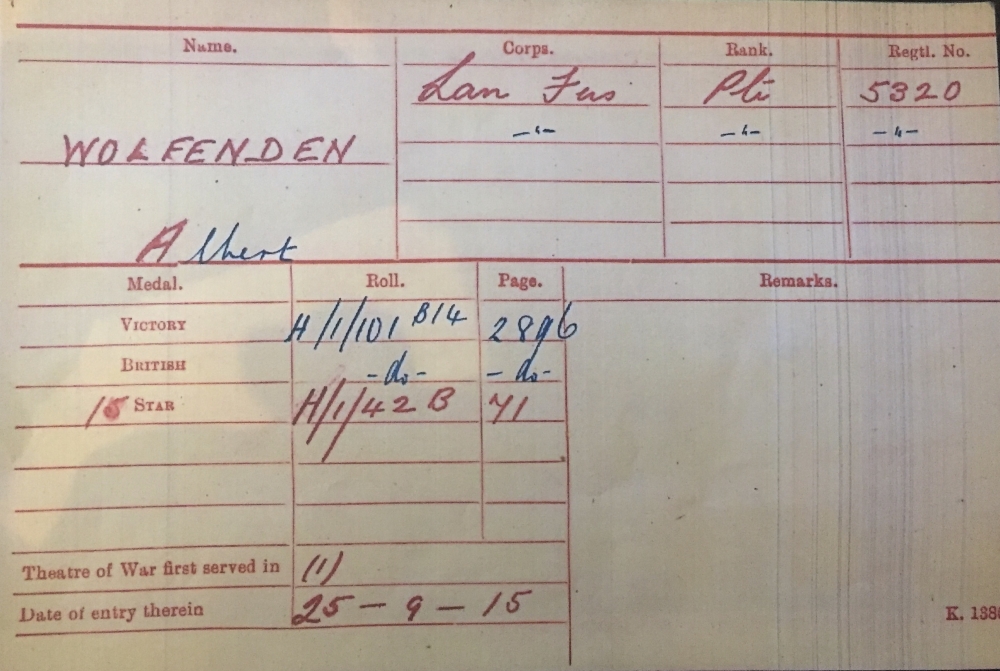 Name. Corps. Rank. Regtl. No.
Lan Fus Pte 5320
WOLFENDEN -"- -"- -"-
Albert
Medal. Roll. Page. Remarks.
VICTORY H/1/101 B14 2896
BRITISH -do- -do-
15 STAR H/1/42 B 71
Theatre of War first served in (1)
Date of entry therein 25-9-15
K. 1380